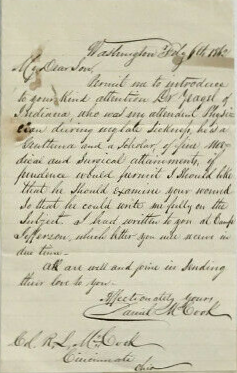 Washington Feby 6th 1862
My Dear Son,
Permit me to introduce
to your kind attention Dr Yeagel of
Indiana who was my attendant Physic
cian during my late sickness, he is a
Gentleman and a Scholar, of fine Me-
dical and Surgical attainments, if
prudence would permit I should like
that he should examine your wound
so that he could write me fully on the
Subject. I had written to you at Camp
Jefferson, which letter you will receive in
due time.
All are well and join in sending
their love to you.
Affectionately Yours
Daniel McCook
Col. R. L. McCook
Cincinnati
Ohio